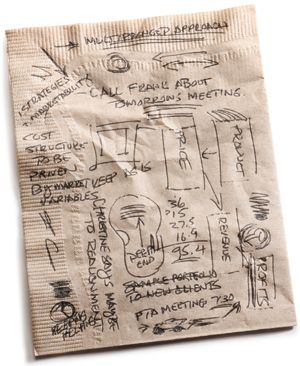 MULTI-PRONGED APPROACH
STRATEGIES
CALL FRANK ABOUT
TOMORROWS MEETING.
COST
STRUCTURE
TO BE
DRIVEN
BY MARKET
VARIABLES
KEEP AS IS
PRICE
PRODUCT
CHRISTINE SAYS MAYBE
TO REALIGNMENT
DEEP
END
36
>15
27.5
16.9
95.4
REVENUE
PROFITS
SAMPLE PORTFOLIO
TO NEW CLIENTS
PTA MEETING 7:30